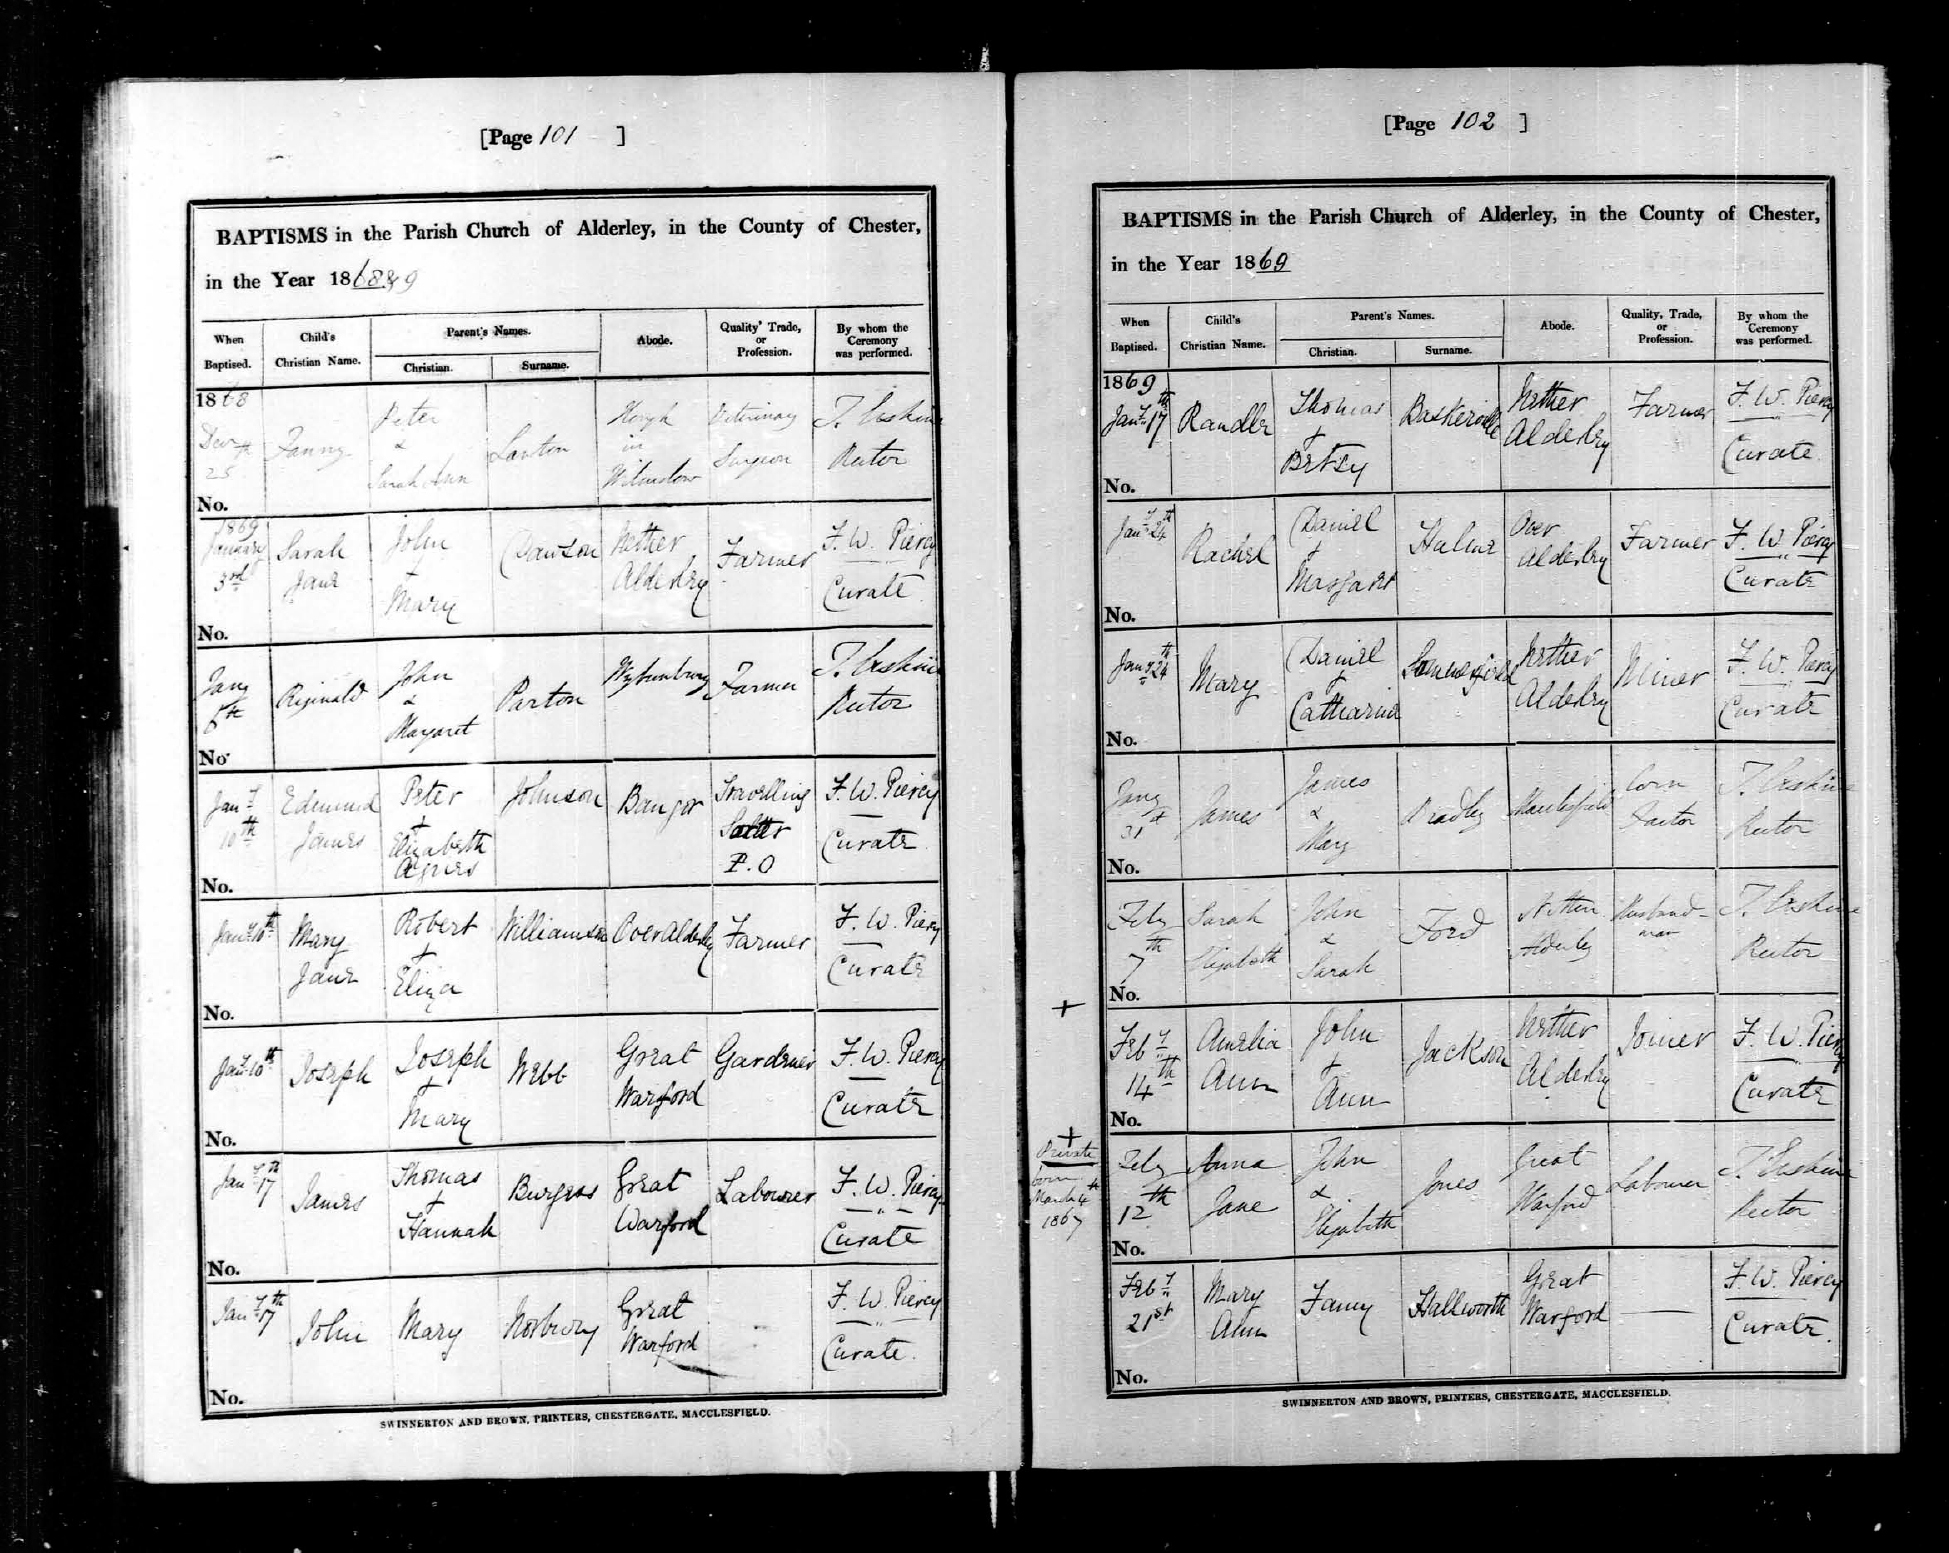 [Page 101 ]
BAPTISMS in the Parish Church of Alderley, in the County of Chester,
in the Year 1868 & 9
When Baptised.
Child's Christian Name.
Parent's Names.
Christian.
Surname.
Abode.
Quality, Trade, or Profession.
By whom the Ceremony was performed.
1868
Decr
25
Fanny
Peter
&
Sarah Ann
Lawton
Hough
in
Wilmslow
Veterinary
Surgeon
T. Erskine
Rector
No.
1869
January
3rd
Sarah
Jane
John
+
Mary
Dawson
Nether
Alderley
Farmer
F. W. Piercy
Curate
No.
Jany
6th
Reginald
John
&
Margaret
Parton
Wybunbury
Farmer
T. Erskine
Rector
No.
Jany
10th
Edmund
James
Peter
+
Elizabeth
Agnes
Johnson
Bangor
Travelling
P. O
F. W. Piercy
Curate
No.
Jany 10th
Mary
Jane
Robert
+
Eliza
Williamson
Over Alderley
Farmer
F. W. Piercy
Curate
No.
Jany 10th
Joseph
Joseph
+
Mary
Webb
Great
Warford
Gardener
F. W. Piercy
Curate
No.
Jany 17th
James
Thomas
+
Hannah
Burgess
Great
Warford
Labourer
F. W. Piercy
Curate
No.
Jany 17th
John
Mary
Norbury
Great
Warford
F. W. Piercy
Curate.
No.
SWINNERTON AND BROWN, PRINTERS, CHESTERGATE, MACCLESFIELD.
[Page 102 ]
BAPTISMS in the Parish Church of Alderley, in the County of Chester,
in the Year 1869
When Baptised.
Child's Christian Name.
Parent's Names.
Christian.
Surname.
Abode.
Quality, Trade, or Profession.
By whom the Ceremony was performed.
1869
Jany 17th
Randle
Thomas
+
Betsy
Baskerville
Nether
Alderley
Farmer
F. W. Piercy
Curate
No.
Jany 24th
Rachel
Daniel
+
Margaret
Hulme
Over
Alderley
Farmer
F. W. Piercy
Curate
No.
Jany 24th
Mary
Daniel
+
Catharine
Nether
Alderley
Miner
F. W. Piercy
Curate
No.
Jany
31st
James
James
&
Mary
Bradley
Macclesfield
Corn
Factor
T. Erskine
Rector
No.
Feby
7th
Sarah
Elizabeth
John
&
Sarah
Ford
Nether
Alderley
Husband-
man
T. Erskine
Rector
No.
+
Feby
14th
Amelia
Ann
John
+
Ann
Jackson
Nether
Alderley
Joiner
F. W. Piercy
Curate
No.
+
Private
born
March 4th
1867
Feby
12th
Anna
Jane
John
&
Elizabeth
Jones
Great
Warford
Labourer
T. Erskine
Rector
No.
Feby
21st
Mary
Ann
Fanny
Hallworth
Great
Warford
F. W. Piercy
Curate.
No.
SWINNERTON AND BROWN, PRINTERS, CHESTERGATE, MACCLESFIELD.